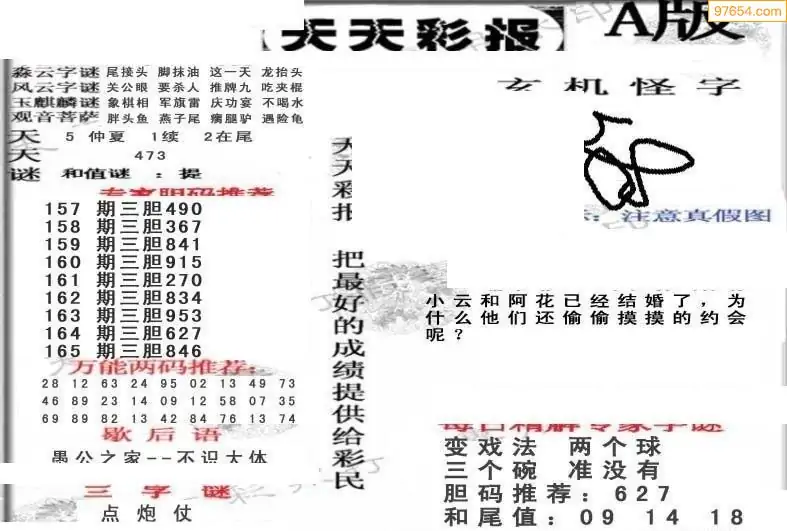 97654.com
天天彩报
A版
森云字谜 尾接头 脚抹油 这一天 龙抬头
风云字谜 关公眼 要杀人 推牌九 吃夹棍
玉麒麟谜 象棋相 军旗雷 庆功宴 不喝水
观音菩萨 胖头鱼 燕子尾 瘸腿驴 遇险龟
天 5 仲夏 1续 2在尾
天 473
谜 和值谜 : 提
专家胆码推荐
157 期三胆490
158 期三胆367
159 期三胆841
160 期三胆915
161 期三胆270
162 期三胆834
163 期三胆953
164 期三胆627
165 期三胆846
万能两码推荐:
28 12 63 24 95 02 13 49 73
46 89 23 14 09 12 58 07 35
69 89 82 13 42 84 76 13 74
歇后语
愚公之家--不识大体
三字谜
点炮仗
天天彩报 把最好的成绩提供给彩民
玄机怪字
: 注意真假图
小云和阿花已经结婚了，为
什么他们还偷偷摸摸的约会
呢？
每日精解专家字谜
变戏法 两个球
三个碗 准没有
胆码推荐: 627
和尾值: 09 14 18